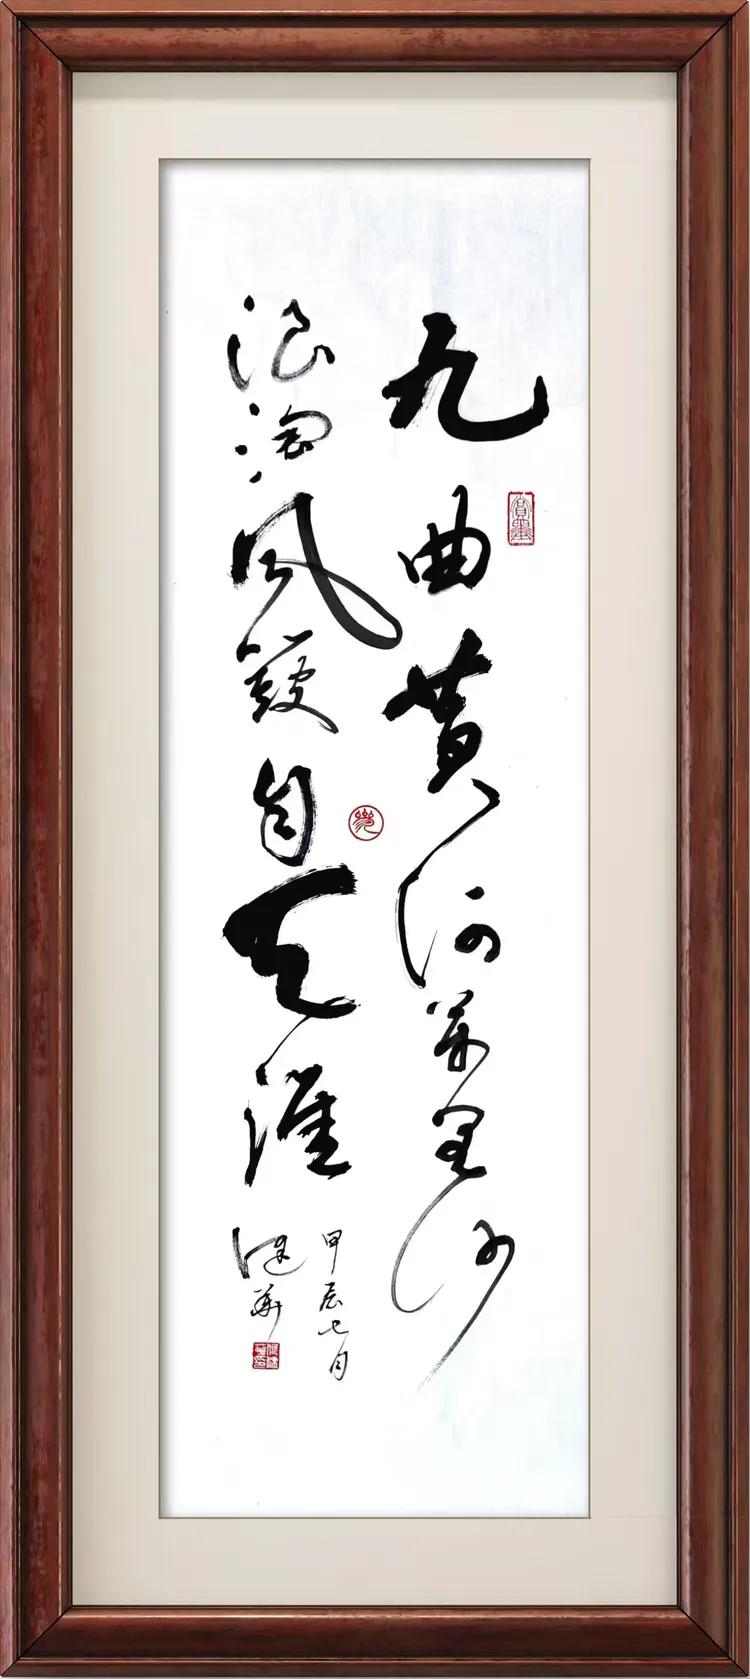 九曲黄河万里沙
浪淘风簸自天涯
甲辰七月